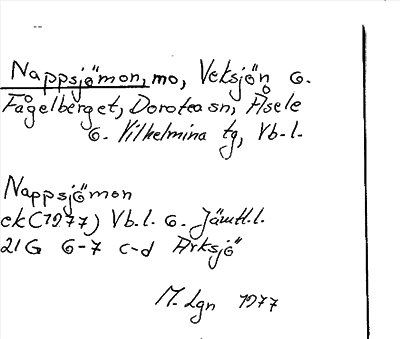 Nappsjömon, mo, Veksjön o.
Fågelberget, Dorotea sn, Åsele
o. Vilhelmina tg, Vb.l.
Nappsjömon
ek (1977) Vb.l. o. Jämtl.l.
21G 6-7 c-d Arksjö
M. Lgn 1977